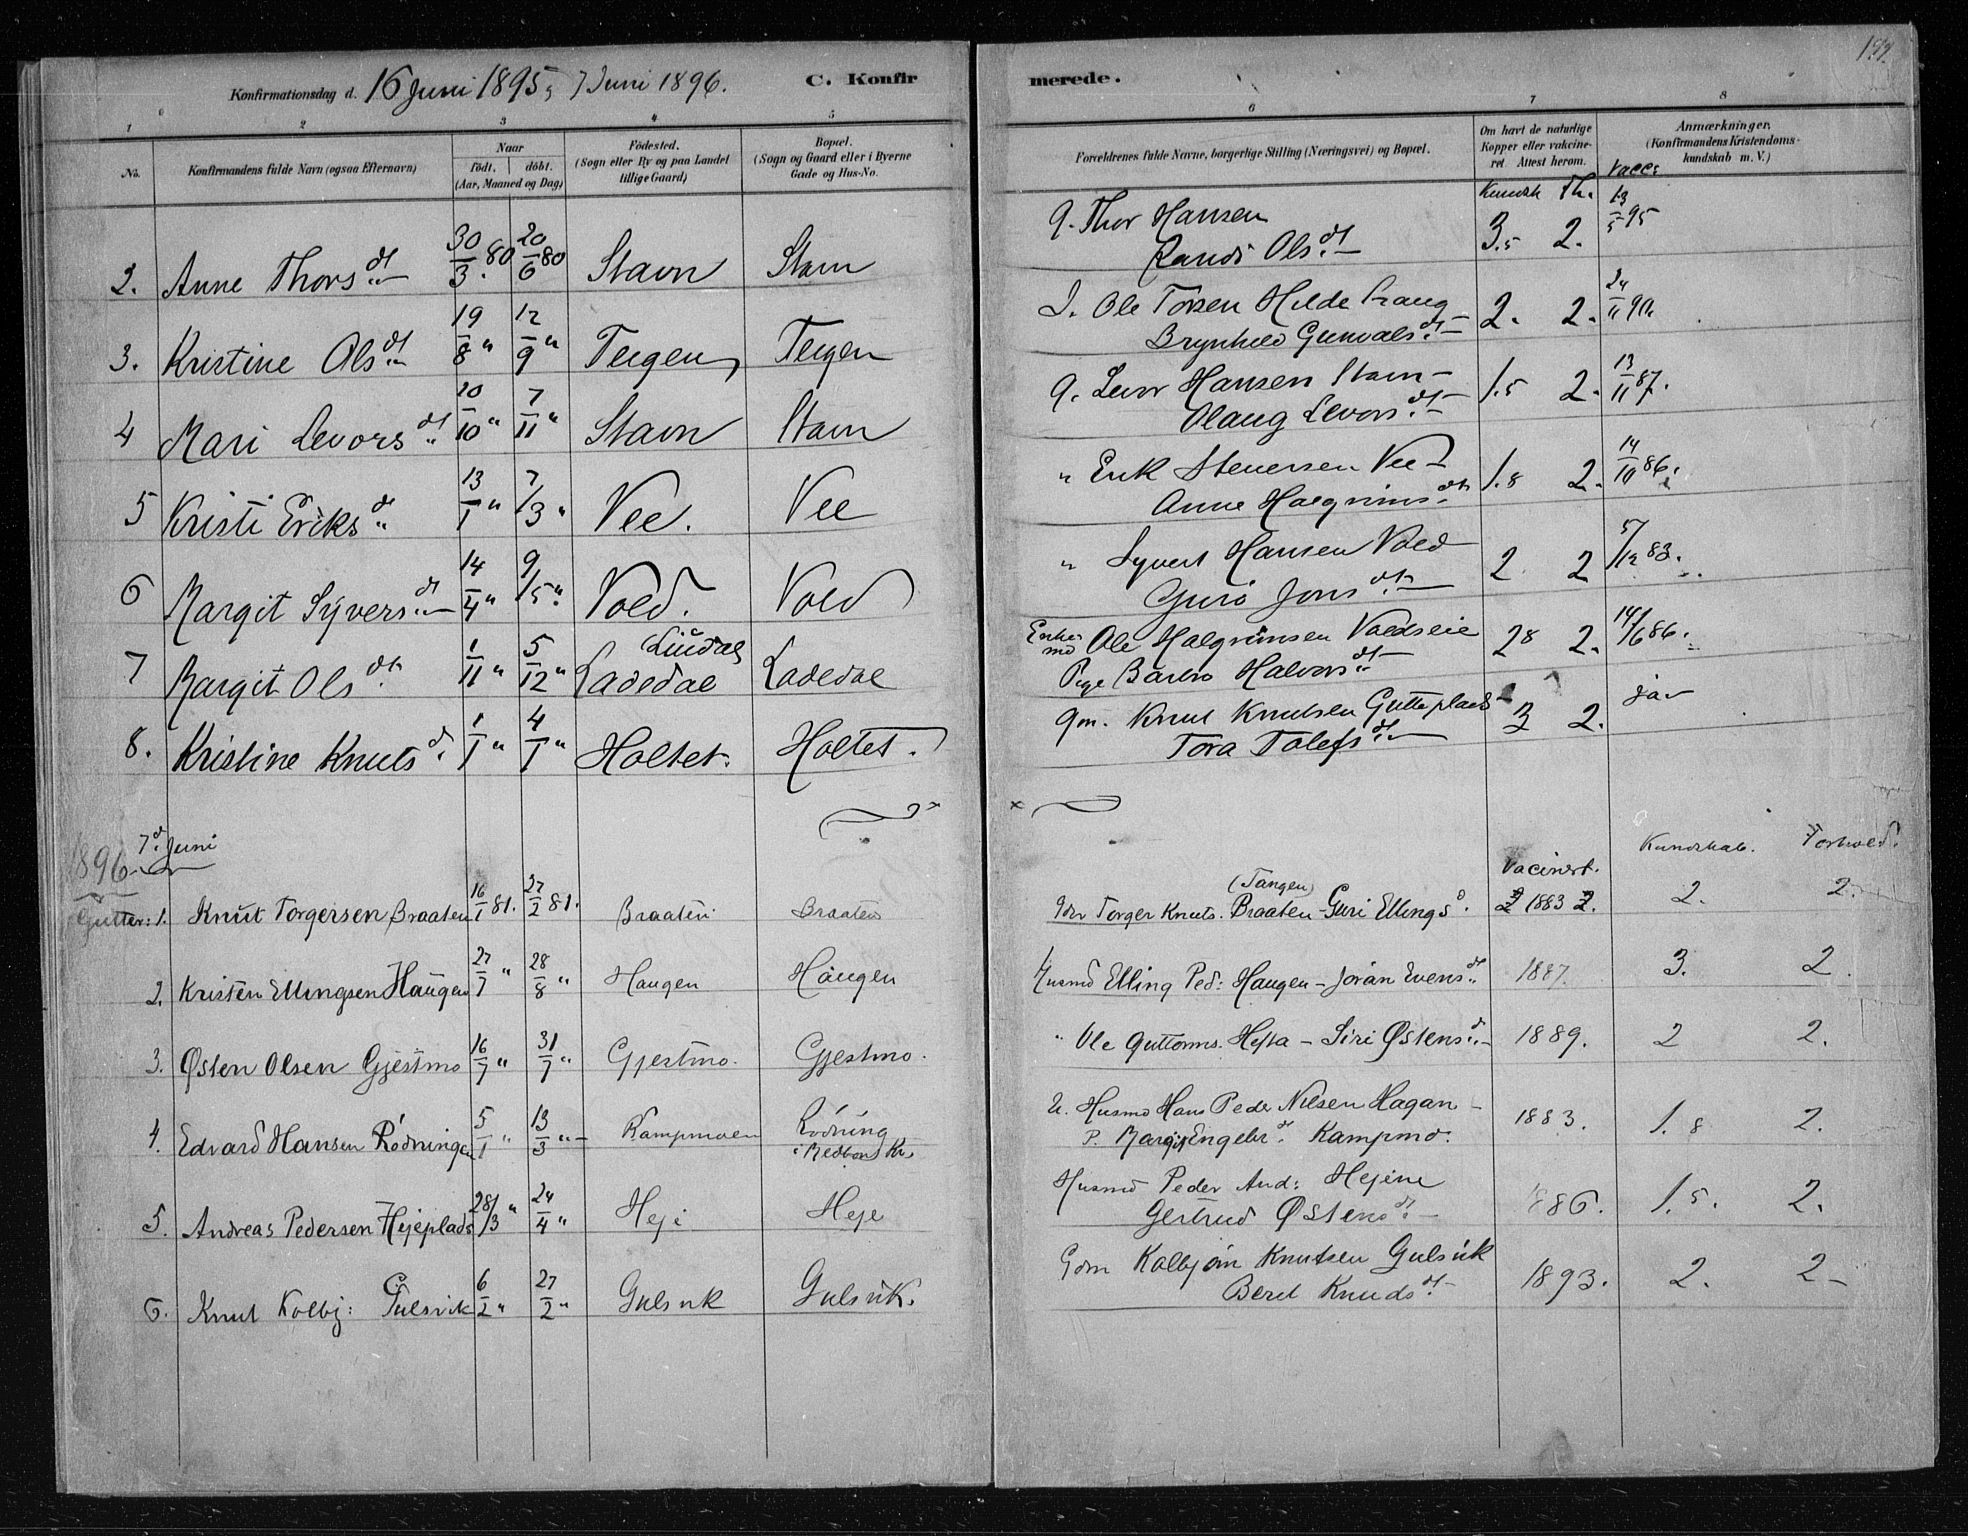 Konfirmationsdag d. 16 Juni 1895, 7 Juni 1896. C. Konfirmerede.
1 2 3 4 5 6 7 8
No.
Konfirmandens fulde Navn (ogsaa Efternavn)
Naar
födt. döbt.
(Aar, Maaned og Dag)
Födested.
(Sogn eller By og paa Landet
tillige Gaard)
Bopæl.
(Sogn og Gaard eller i Byerne
Gade og Hus-No.
Forældrenes fulde Navne, borgerlige Stilling (Næringsvei) og Bopæl.
Om havt de naturlige
Kopper eller vakcine-
ret. Attest herom.
Anmærkninger,
(Konfirmandens Kristendoms-
kundskab m. V.)
Kundsk Th. Vacc:
2. Anne Thorsdt 30/3 80 20/6 80 Stavn Stavn G. Thor Hansen 3.5 2. 13/5 95
Randi Olsdt
3. Kristine Olsdt 19/8 " 12/9 " Teigen Teigen I. Ole Torsen Hilde 2. 2. 24/11 90.
Brynhild Gunvalsdt
4 Mari Levorsdt 20/10 " 7/11 " Stavn Stavn G. Levor Hansen Stavn 1.5 2. 13/11 87.
Olaug Levorsdt
5 Kristi Eriksd 13/1 " 7/3 " Vee. Vee " Erik Stenersen Vee 1.8 2. 14/10 86.
Anne Halgrimsdt
6 Margit Syversdt 14/4 " 9/5 " Vold. Vold " Syvert Hansen Vold 2 2 5/12 83.
Guro Jonsdt
7 Margit Olsdt 1/11 " 5/12 " Ladedal Lindal Ladedal Enke md Ole Halgrimsen Voldseie 28 2. 14/6 86.
Pige Barbro Halvorsdt
8. Kristine Knutsd. 1/1 " 4/1 " Holtet. Holtet. Gm. Knut Knutsen Gutteplads 3 2. ja
Tora Tolefsdt
1896 7d Juni
Vacinert. Kundskab. Forhold.
Gutter: 1. Knut Torgersen Braaten 16/1 81. 27/2 81. Braaten Braaten Gdr Torger Knuts. Braaten (Tangen) Guri Ellingsd. 1883 2. 2.
2. Kristen Ellingsen Haugen 27/7 " 28/8 " Haugen Haugen Husmd Elling Ped: Haugen - Joran Evensdt 1887. 3. 2.
3. Østen Olsen Gjestmo 16/7 " 31/7 " Gjestmo. Gjestmo. " Ole Guttorms. Hefta - Siri Østensd. 1889. 2 2.
4. Edvard Hansen Rödningen 5/1 " 13/3 " Kampmoen Rödning U. Husmd Hans Peder Nilsen Hagan 1883. 1.8 2.
P. Margit Engebr.d. Kampmo.
5. Andreas Pedersen Hejeplads 28/3 " 24/4 " Heje Heje Husmd Peder And: Hejeie 1886. 1.5. 2.
Gertrud Østensdt
6. Knut Kolbj: Gulsvik 6/2 " 27/2 " Gulsvik Gulsvik. Gdm Kolbjörn Knutsen Gulsvik 1893. 2. 2
Beret Knudsdt